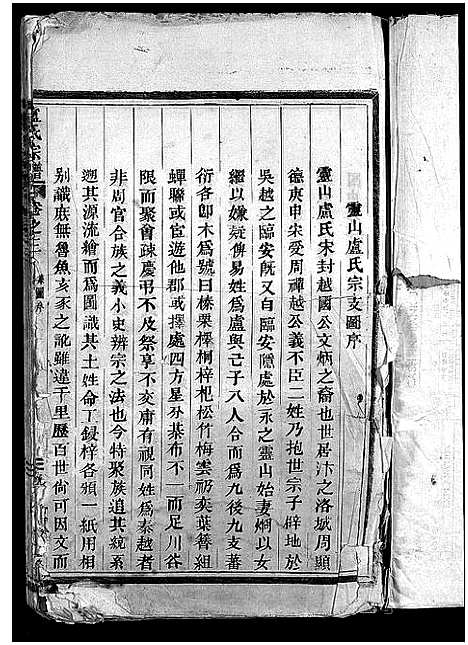 靈山盧氏宗支圖序
靈山盧氏宋封越國公文炳之裔也世居汴之洛城周顯
德庚申宋受周禪越公義不臣二姓乃抱世宗子僻地於
吳越之臨安旣又自臨安隱處於永之靈山始妻炯以女
繼以嫌疑俾易姓爲盧與己子八人合而爲九後九支蕃
衍各卽木爲號曰榛栗椅桐梓杞松竹梅雲礽奕葉簪組
蟬聯或宦遊他郡或擇處四方星分棊布不一而足川谷
限而聚會疎慶弔不及祭享不交庸有視同姓爲秦越者
非周官合族之義小史辨宗之法也今特聚族追其統系
遡其源流繪而爲圖識其土姓命丁鋟梓各頒一紙用相
別識庶無魯魚亥豕之訛雖違千里歷百世尙可因文而
盧氏宗譜 卷之三